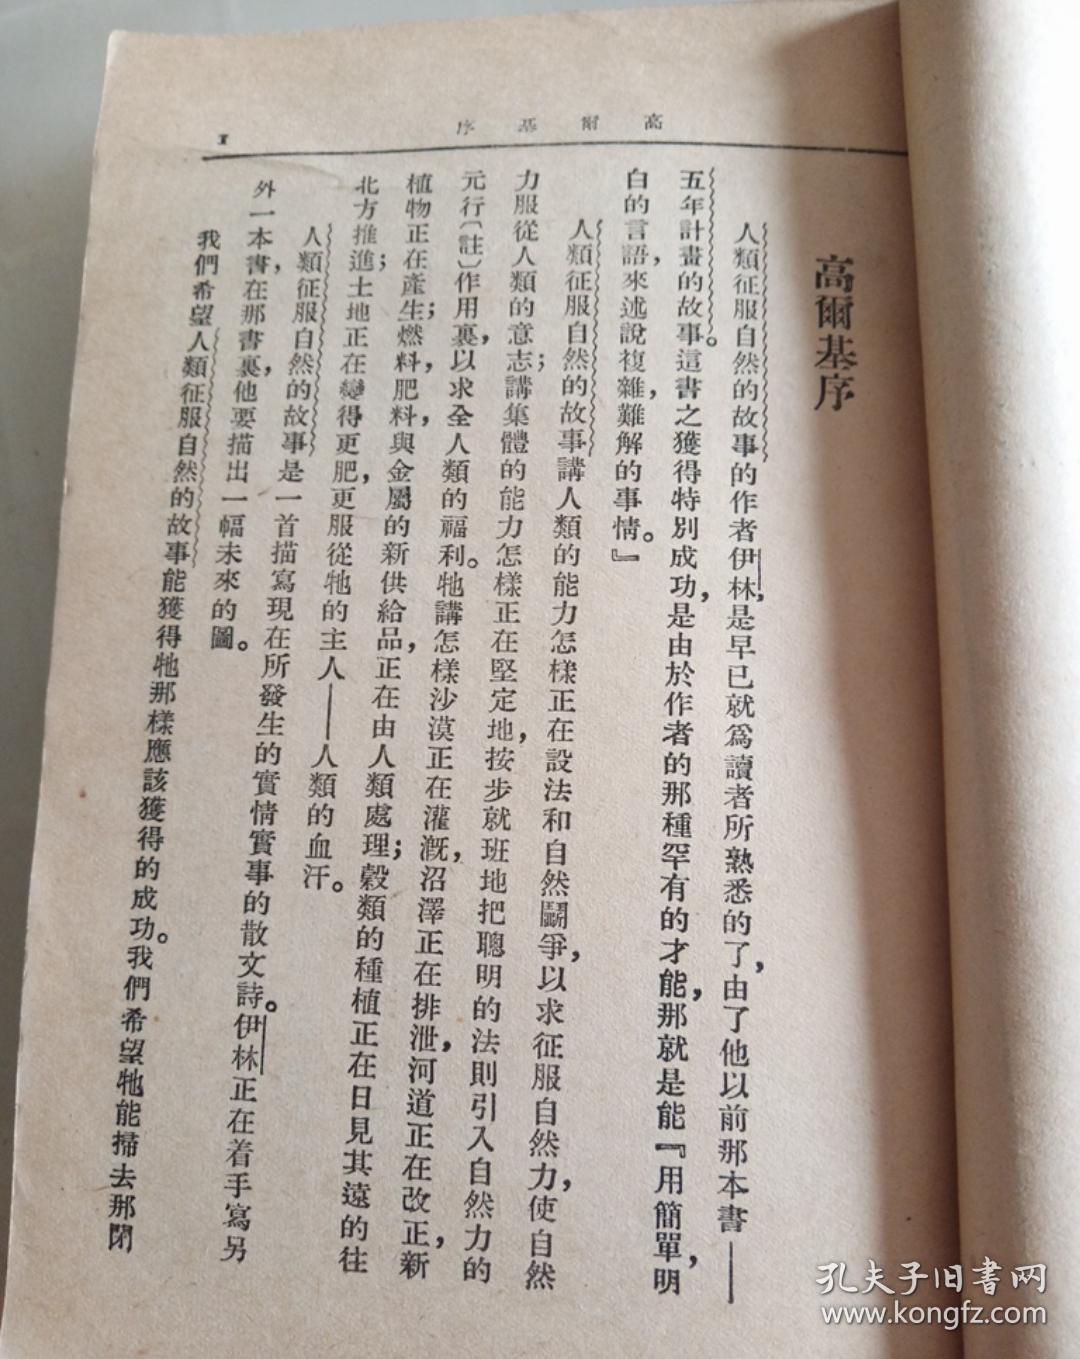 高爾基序
1
高爾基序
人類征服自然的故事的作者伊林，是早已就爲讀者所熟悉的了，由了他以前那本書——
五年計畫的故事。這書之獲得特別成功，是由於作者的那種罕有的才能，那就是能『用簡單，明
白的言語，來述說複雜，難解的事情。』
人類征服自然的故事講人類的能力怎樣正在設法和自然鬭爭，以求征服自然力，使自然
力服從人類的意志；講集體的能力怎樣正在堅定地，按步就班地把聰明的法則引入自然力的
元行〔註〕作用裏，以求全人類的福利。牠講怎樣沙漠正在灌漑，沼澤正在排泄，河道正在改正，新
植物正在產生；燃料，肥料，與金屬的新供給品，正在由人類處理；穀類的種植正在日見其遠的往
北方推進；土地正在變得更肥，更服從牠的主人——人類的血汗。
人類征服自然的故事是一首描寫現在所發生的實情實事的散文詩。伊林正在着手寫另
外一本書，在那書裏，他要描出一幅未來的圖。
我們希望人類征服自然的故事能獲得牠那樣應該獲得的成功。我們希望牠能掃去那閉
孔夫子旧書网
www.kongfz.com